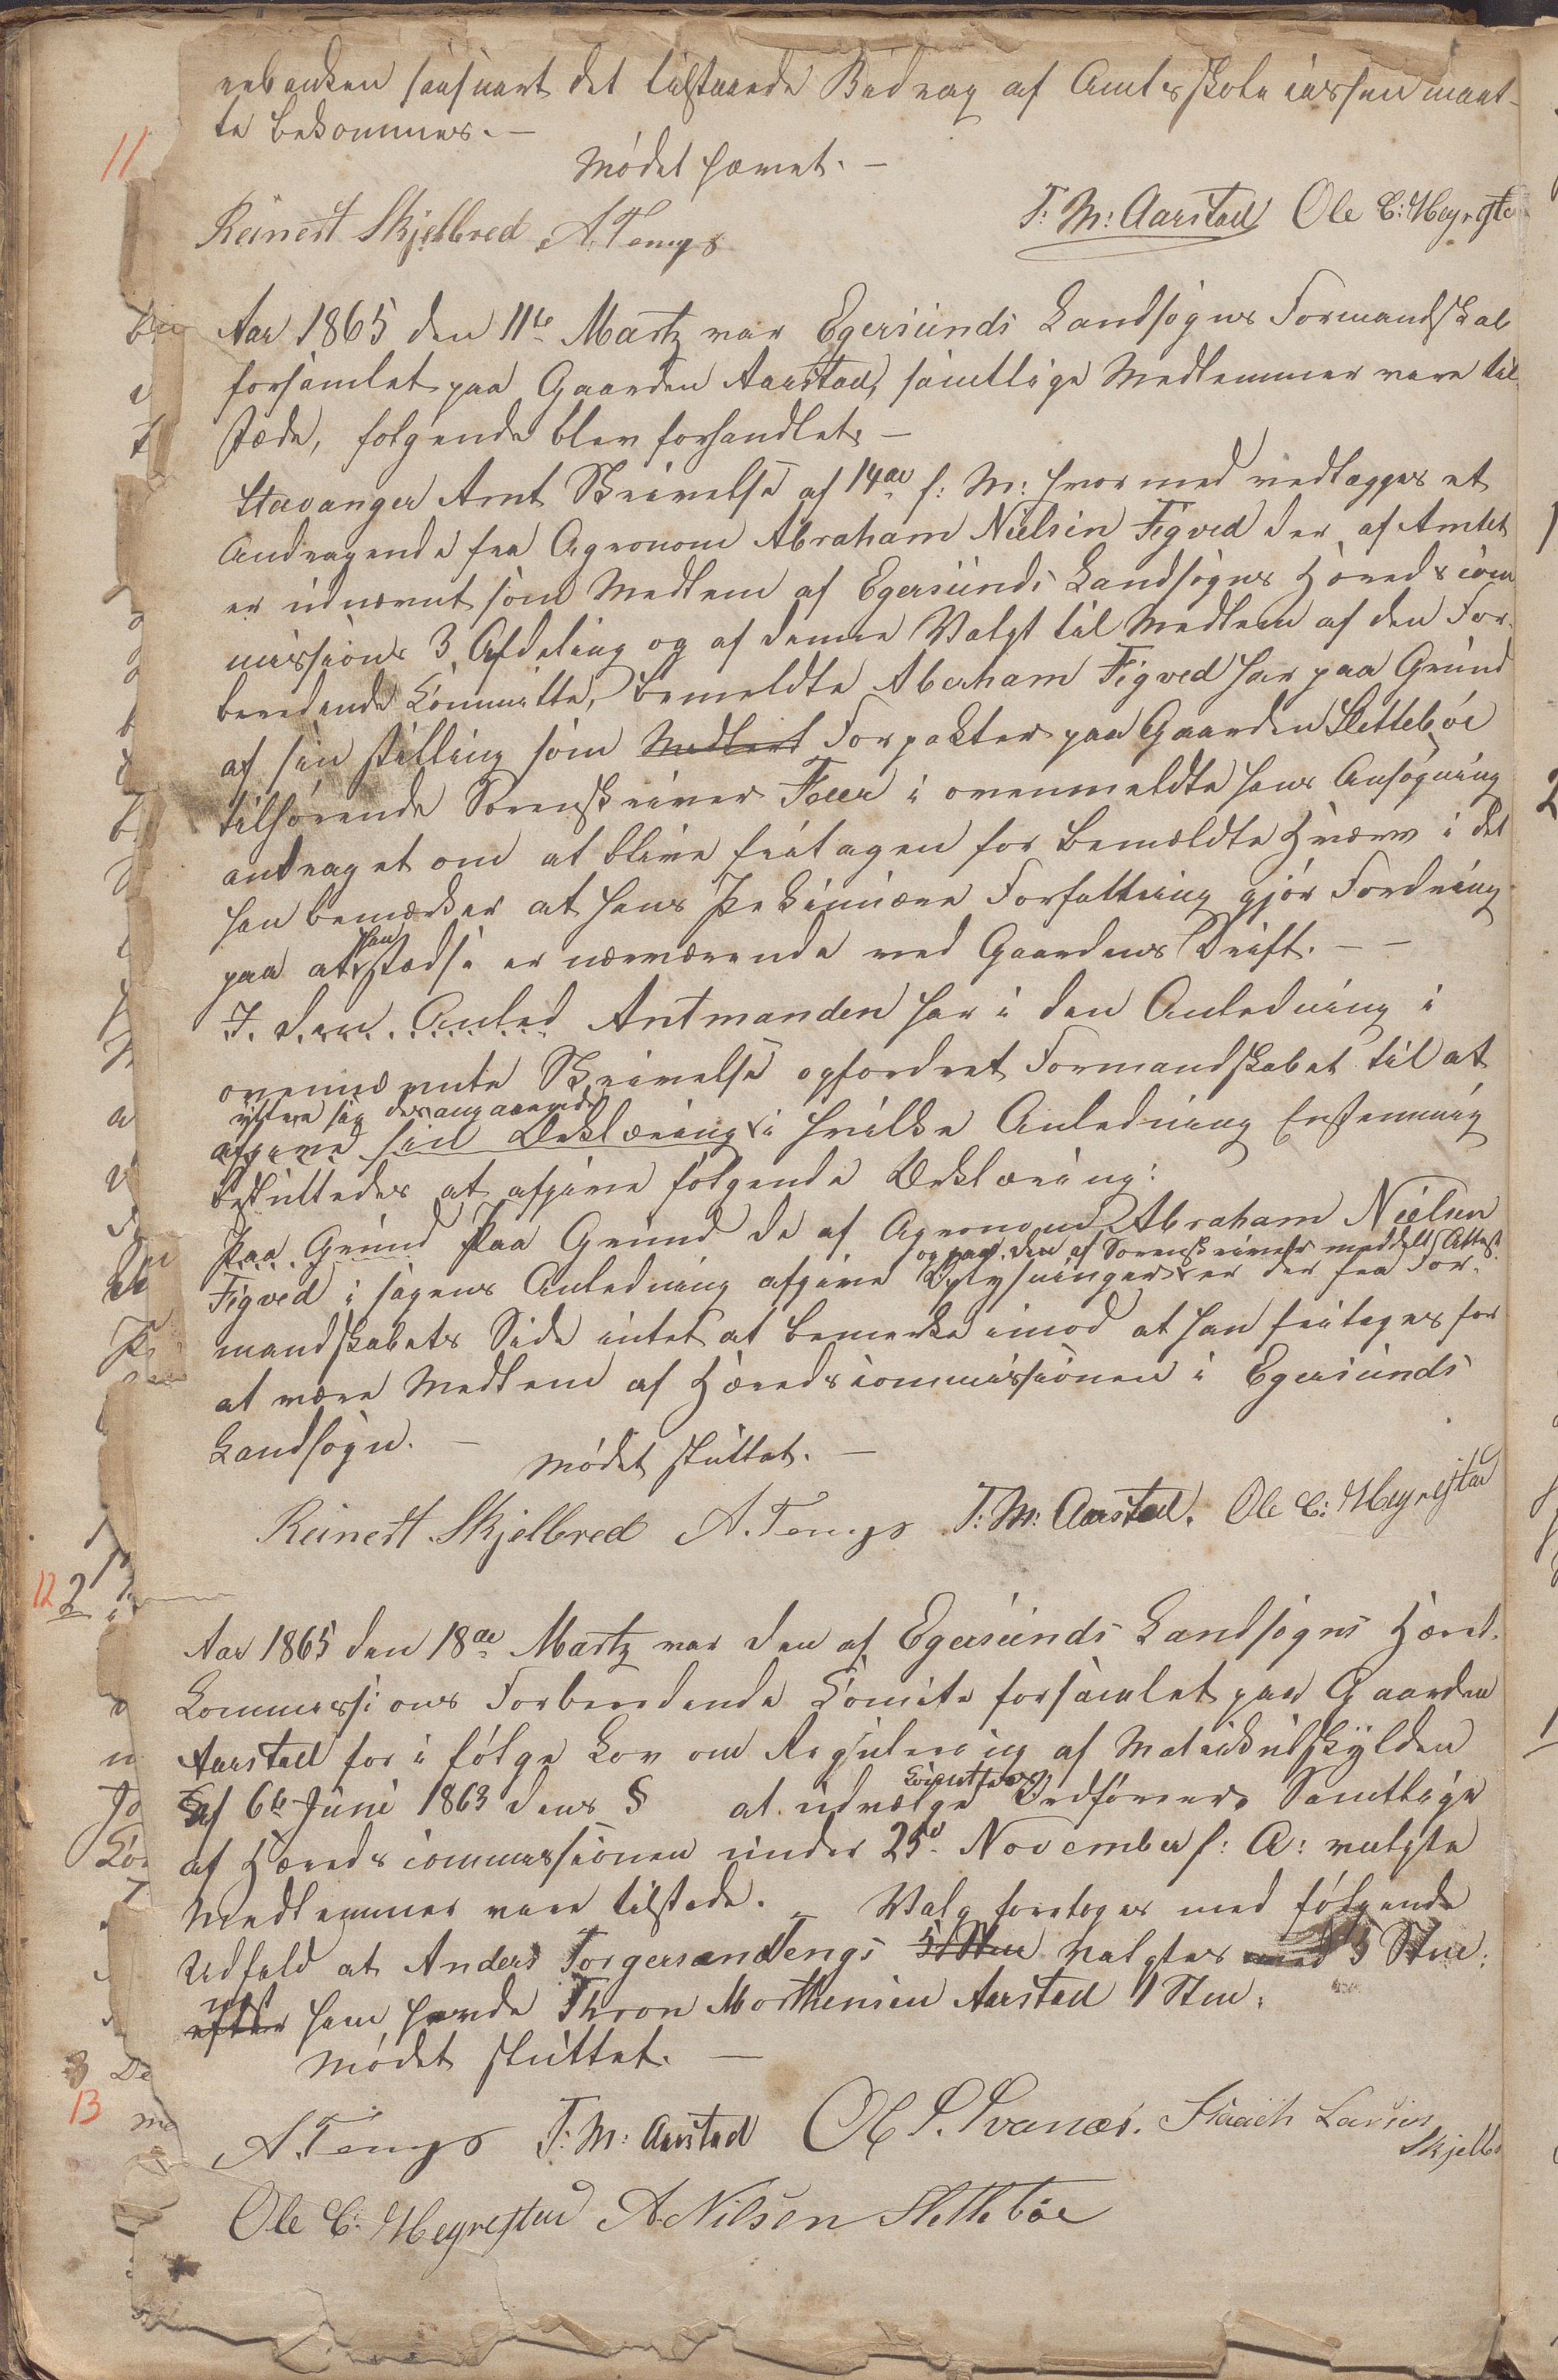 rebanken saasnart det tilstaaede Bidrag af Amtsskolecassen maat-
te bekommes. -
11
Mødet hævet. -
Reinert Skjelbred A. Tengs
T: M: Aarstad Ole C: Hegrestad
Aar 1865 den 11te Martz var Egersunds Landsogns Formandskab
forsamlet paa Gaarden Aarstad, samtlige Medlemmer vare til
stæde, følgende blev forhandlet: -
Stavanger Amt Skrivelse af 14de f: M: hvormed vedlægges et
Andragende fra Agronom Abraham Nielsen Figved der af Amtet
er udnævnt som Medlem af Egersunds Landsogns Heredscom
missions 3 Afdeling og af denne Valgt til Medlem af den For-
beredende Committe, bemeldte Aberham Figved har paa Grund
af sin stilling som Medlem Forpakter paa Gaarden Slettebøe
tilhørende Sorenskriver Feer i ovenmeldte hans Ansøgning
andraget om at blive fritagen for bemeldte Hværv i det
han bemærker at hans Pekuniære Forfattning gjør Fordring
paa at han stædse er nærværende ved Gaardens Drift. - -
I den Anled Amtmanden har i den Anledning i
ovennævnte Skrivelse opfordret Formandskabet til at
yttre sig desangaaende
afgive sin Erklæring i hvilke Anledning Enstemmig
besluttedes at afgive følgende Erklæring:
Paa Grund Paa Grund de af Agronom Abraham Nielsen
og paa den af Sorenskriver meddelt Attest
Figved i sagens Anledning afgivne Oplysninger er der fra For-
mandskabets Side intet at bemerke imod at han fritages for
at være Medlem af Heredscommissionen i Egersunds
Landsogn. -
Mødet sluttet. -
Reinert Skjelbred A. Tengs T: M: Aarstad. Ole C: Hegrestad
12 2
Aar 1865 den 18de Martz var den af Egersunds Landsogns Hered.
Commissions Forberedende Comite forsamlet paa Gaarden
Aarstad for i følge Lov om Regulering af Matrikulskylden
af 6te Juni 1863 dens § at udvælge Ordfører. Samtlige
af Heredscommissionen under 25d November f: A: valgte
Medlemmer vare tilstede. - Valg foretoges med følgende
Udfald at Anders Torgersen Tengs 5 Stm valgtes med 5 Stm:
næst
efter ham havde Thron Morthensen Aarstad 1 Stm:
Mødet sluttet. -
3
13
A. Tengs T: M: Aarstad Ole P. Svanæs. Isaach Larsen
Skjelb
Ole C: Hegrestad A. Nilsen Slettebøe